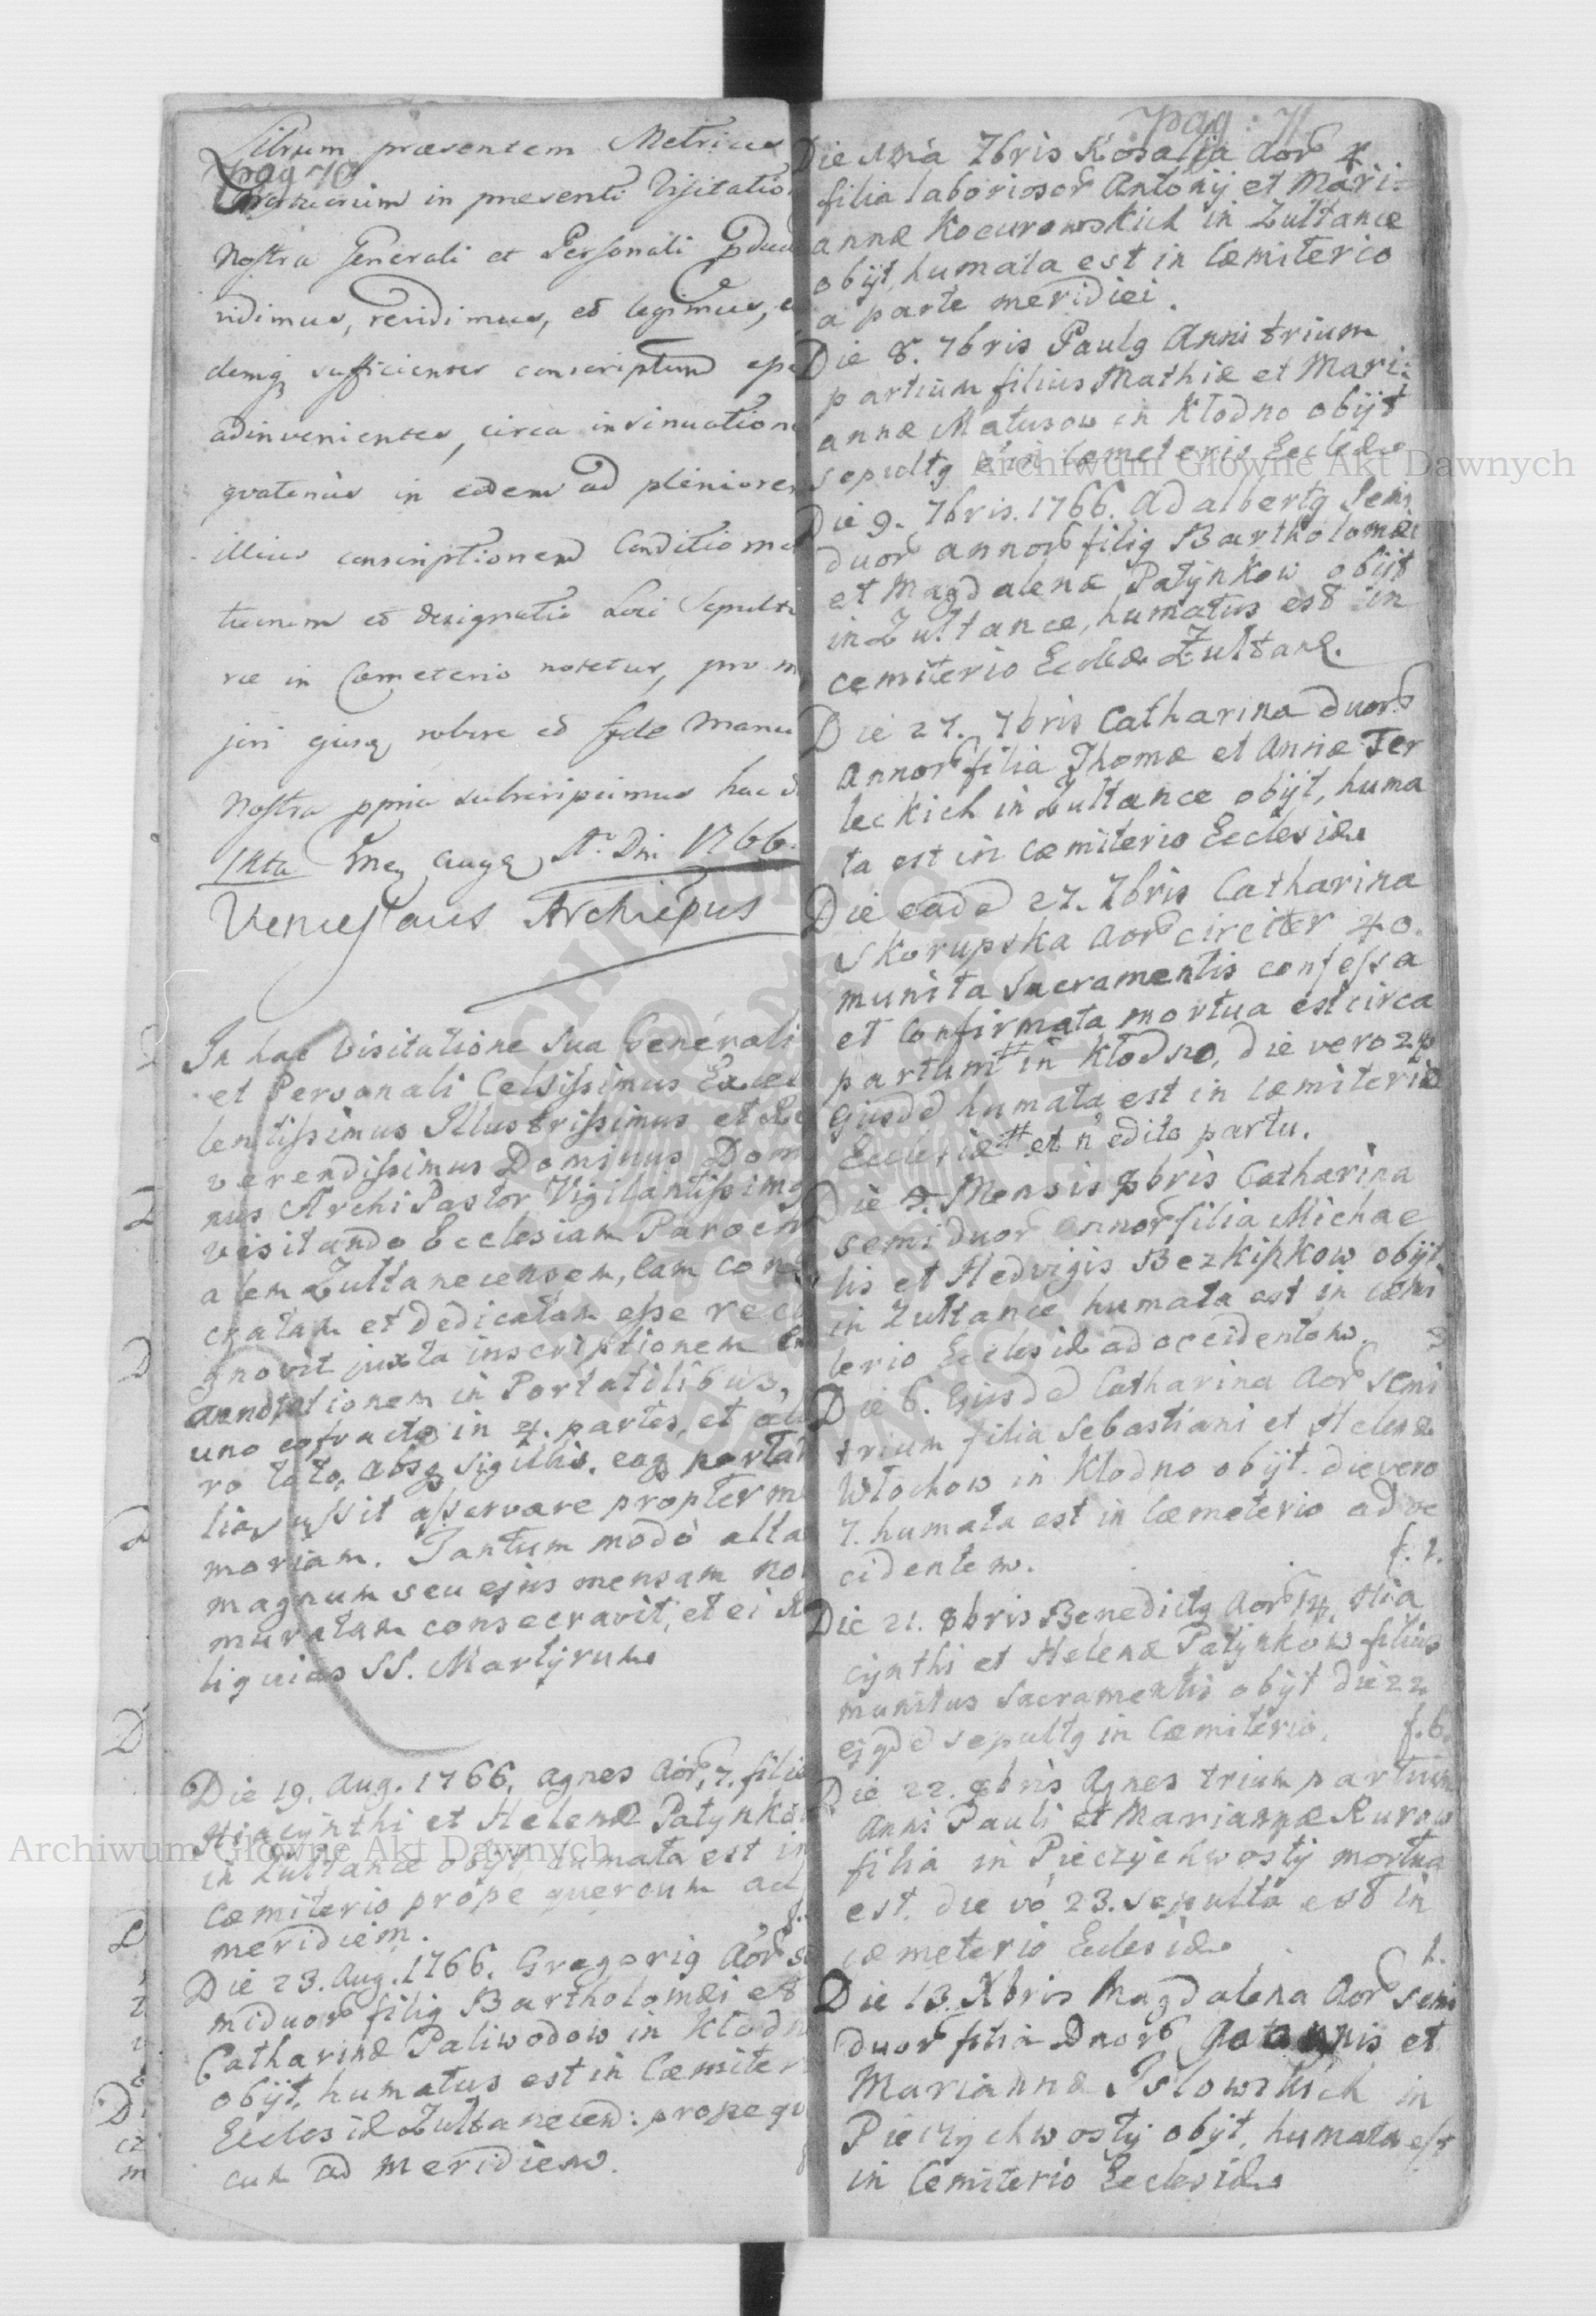 Librum præsentem Metrices
pag 70
Mortuorum in presenti Visitatio
Nostra Generali et Personali
vidimus, revidimus, et legimus,
demq sufficienter conscriptum esse
adinvenientes, circa insinuatione
quatenus in eodem ad pleniorem
illius conscriptionem Conditio mor
tuorum et designatio Loci Sepultu
ræ in Cœmeterio notetur, pro ma
jori ejusq robore et fide Manu
Nostra ppria subscripsimus hac d
1Kta Mey Augq Aº Dni 1766.
Venceslaus Archiepus
In hac Visitatione sua Generali
et Personali Celsissimus Excel
lentissimus Illustrissimus et Re
verendissimus Dominus Domi
nus Archi Pastor Vigilantissimq
visitando Ecclesiam Parochi
alem Zultanecensem, eam conse
cratam et dedicatam esse reco
gnovit juxta inscriptionem
in Portatilibus,
uno effracto in 4. partes, et alte
ro toto, absq sigillis, eaq portati
lia jussit asservare propter me
moriam. Tantum modò altare
magnum seu ejus mensam no
muratam consecravit, et ei Re
liquias SS. Martyrum
Die 19. Aug. 1766. Agnes Aor, 7. filia
Hiacÿnthi et Helenæ Patynkow
in Zultance obijt, humata est in
cœmiterio prope quercum ad
meridiem.
Die 23. Aug. 1766. Gregoriq Aor se
miduor filiq Bartholomæi et
Catharinæ Paliwodow in Klodno
obijt, humatus est in Cœmiter
Ecclesiæ Zultanecen: prope qu
cum ad meridiem.
pag: 71
Die 1ma 7bris Rosalia Aor 4
filia laboriosor Antonij et Mari=
annæ Kocurowskich in Zultance
obijt, humata est in Cœmiterio
a parte meridiei.
Die 8. 7bris Paulq Anni trium
partium filius Mathiæ et Mari=
annæ Matusow in Klodno obijt
sepultq e in Cœmeteris Eccleæ
Die 9. 7bris. 1766. Adalbertq Semi
duor annor filiq Bartholomæi
et Magdalenæ Patÿnkow obijt
in Zultance, humatus est in
cemiterio Eccleæ Zultanc.
Die 27. 7bris Catharina duor
Annor filia Thomæ et Annæ Ter
leckich in Zultance obijt, huma
ta est in cœmiterio Ecclesiæ
Die eade 27. 7bris Catharina
Skorupska Aor circiter 40.
munita Sacramentis confessa
et Confirmata mortua est circa
partum # in Klodno, die vero 29
Ejusdē humata est in cœmiterio
Ecclesiæ # et n edito partu.
Die 4. Mensis 8bris Catharina
semiduor Annor filia Michae
lis et Hedvigis Bezkipkow obijt
in Zultance humata est in cœmi
terio Ecclesiæ ad occidentem.
Die 6. Ejusdē Catharina Aor semi
trium filia Sebastiani et Helenæ
Wlochow in Klodno obijt. die vero
7. humata est in Cœmeterio ad oc
cidentem. f. 1.
Die 21. 8bris Benedictq Aor 14. Hia
cÿnthi et Helenæ Patÿnkow filius
munitus Sacramentis obijt die 22
ejqdē sepultq in Cœmiterio. f. 6.
Die 22. 8bris Agnes trium partium
Anni Pauli et Mariannæ Kurow
filia in Pieczÿchwostÿ mortua
est. die vo 23. sepulta est in
cœmeterio Ecclesiæ 1.
Die 13. Xbris Magdalena Aor semi
duor filia Dnor Joannis et
Mariannæ in
Pieczÿchwostÿ obijt, humata est
in Cemiterio Ecclesiæ
Archiwum Główne Akt Dawnych
Archiwum Główne Akt Dawnych